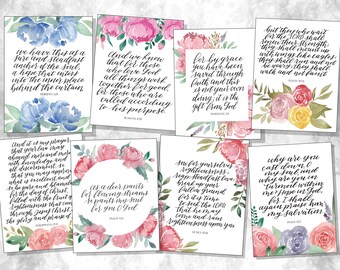 we have this as a
sure and steadfast
anchor of the soul,
a hope that enters
into the inner place
behind the curtain
HEBREWS 6:19
And we know
that for those
who love God
all things work
together for good,
for those who are
called according
to his purpose.
ROMANS 8:28
for by grace
you have been
saved through
faith and this
is not your own
doing, it is the
gift from God
but they who wait
for the LORD shall
renew their strength;
they shall mount up
with wings like eagles;
they shall run and not
be weary; they shall
walk and not faint
And it is my prayer
that your love may
abound more and more
with knowledge
and all discernment,
so that you may approve
what is excellent and
so be pure and blameless
for the day of Christ,
filled with the fruit of
righteousness that comes
through Jesus Christ,
the glory and praise of
as a deer pants
for flowing streams
so pants my soul
for you O God
PSALM 42:1
sow for yourselves
righteousness;
reap steadfast love
break up your
fallow ground
for it is time
to seek the LORD
that he may
come and rain
righteousness upon you
why are you
cast down O
my soul and
why are you in
turmoil within
me; Hope in God
for I shall
again praise him
my salvation